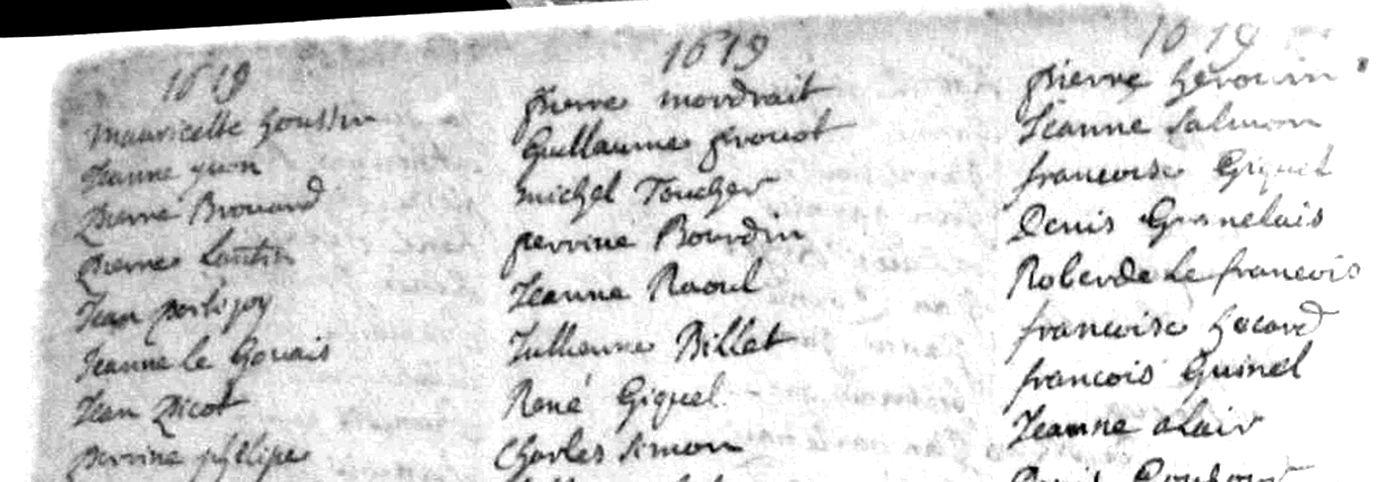 1619
Mauricette houssin
Jeanne yuon
Pierre Brouard
Pierre Lontin
Jean
Jeanne le Gouais
Jean Picot
perrine phlipe
1619
pierre mordrait
Guillaume prouot
michel Toucher
perrine Bourdin
Jeanne Raoul
Jullienne Billet
René Giquel
Charles simon
1619
pierre herouin
Jeanne salmon
francoise Giquel
Denis
Roberde Le francois
francoise hocard
francois Guinel
Jeanne alair